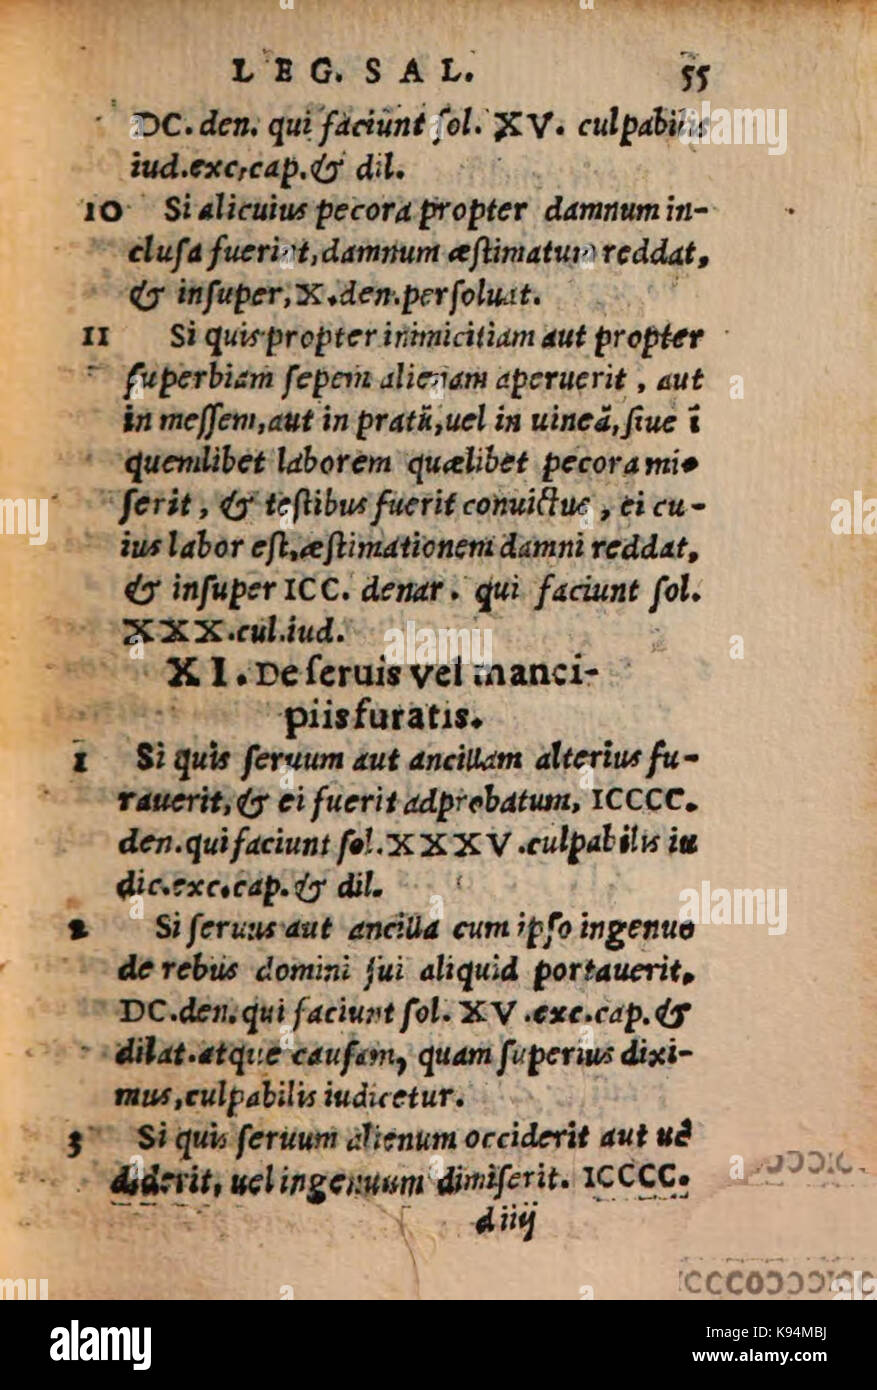 LEG. SAL. 55
DC. den. qui faciunt ſol. XV. culpabilis
iud.exc.cap.& dil.
10 Si alicuius pecora propter damnum in-
cluſa fuerint, damnum æſtimatum reddat,
& inſuper, X. den. perſoluat.
11 Si quis propter inimicitiam aut propter
ſuperbiam ſepem alienam aperuerit, aut
in meſſem, aut in pratū, uel in uineā, ſiue ī
quemlibet laborem quælibet pecora mi-
ſerit, & teſtibus fuerit conuictus, ei cu-
ius labor eſt, æſtimationem damni reddat,
& inſuper ICC. denar. qui faciunt ſol.
XXX.cul.iud.
XI. De ſeruis vel manci-
piis furatis.
1 Si quis ſeruum aut ancillam alterius fu-
rauerit, & ei fuerit adprobatum, ICCCC.
den. qui faciunt ſol. XXXV. culpabilis iu
dic.exc.cap.& dil.
2 Si ſeruus aut ancilla cum ipſo ingenuo
de rebus domini ſui aliquid portauerit,
DC.den. qui faciunt ſol. XV. exc.cap.&
dilat. atque cauſam, quam ſuperius dixi-
mus, culpabilis iudicetur.
3 Si quis ſeruum alienum occiderit aut uē
diderit, uel ingenuum dimiſerit. ICCCC.
d iiij
alamy
K94MBJ
www.alamy.com